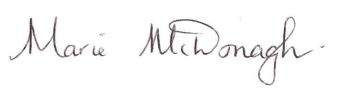 Marie McDonagh.